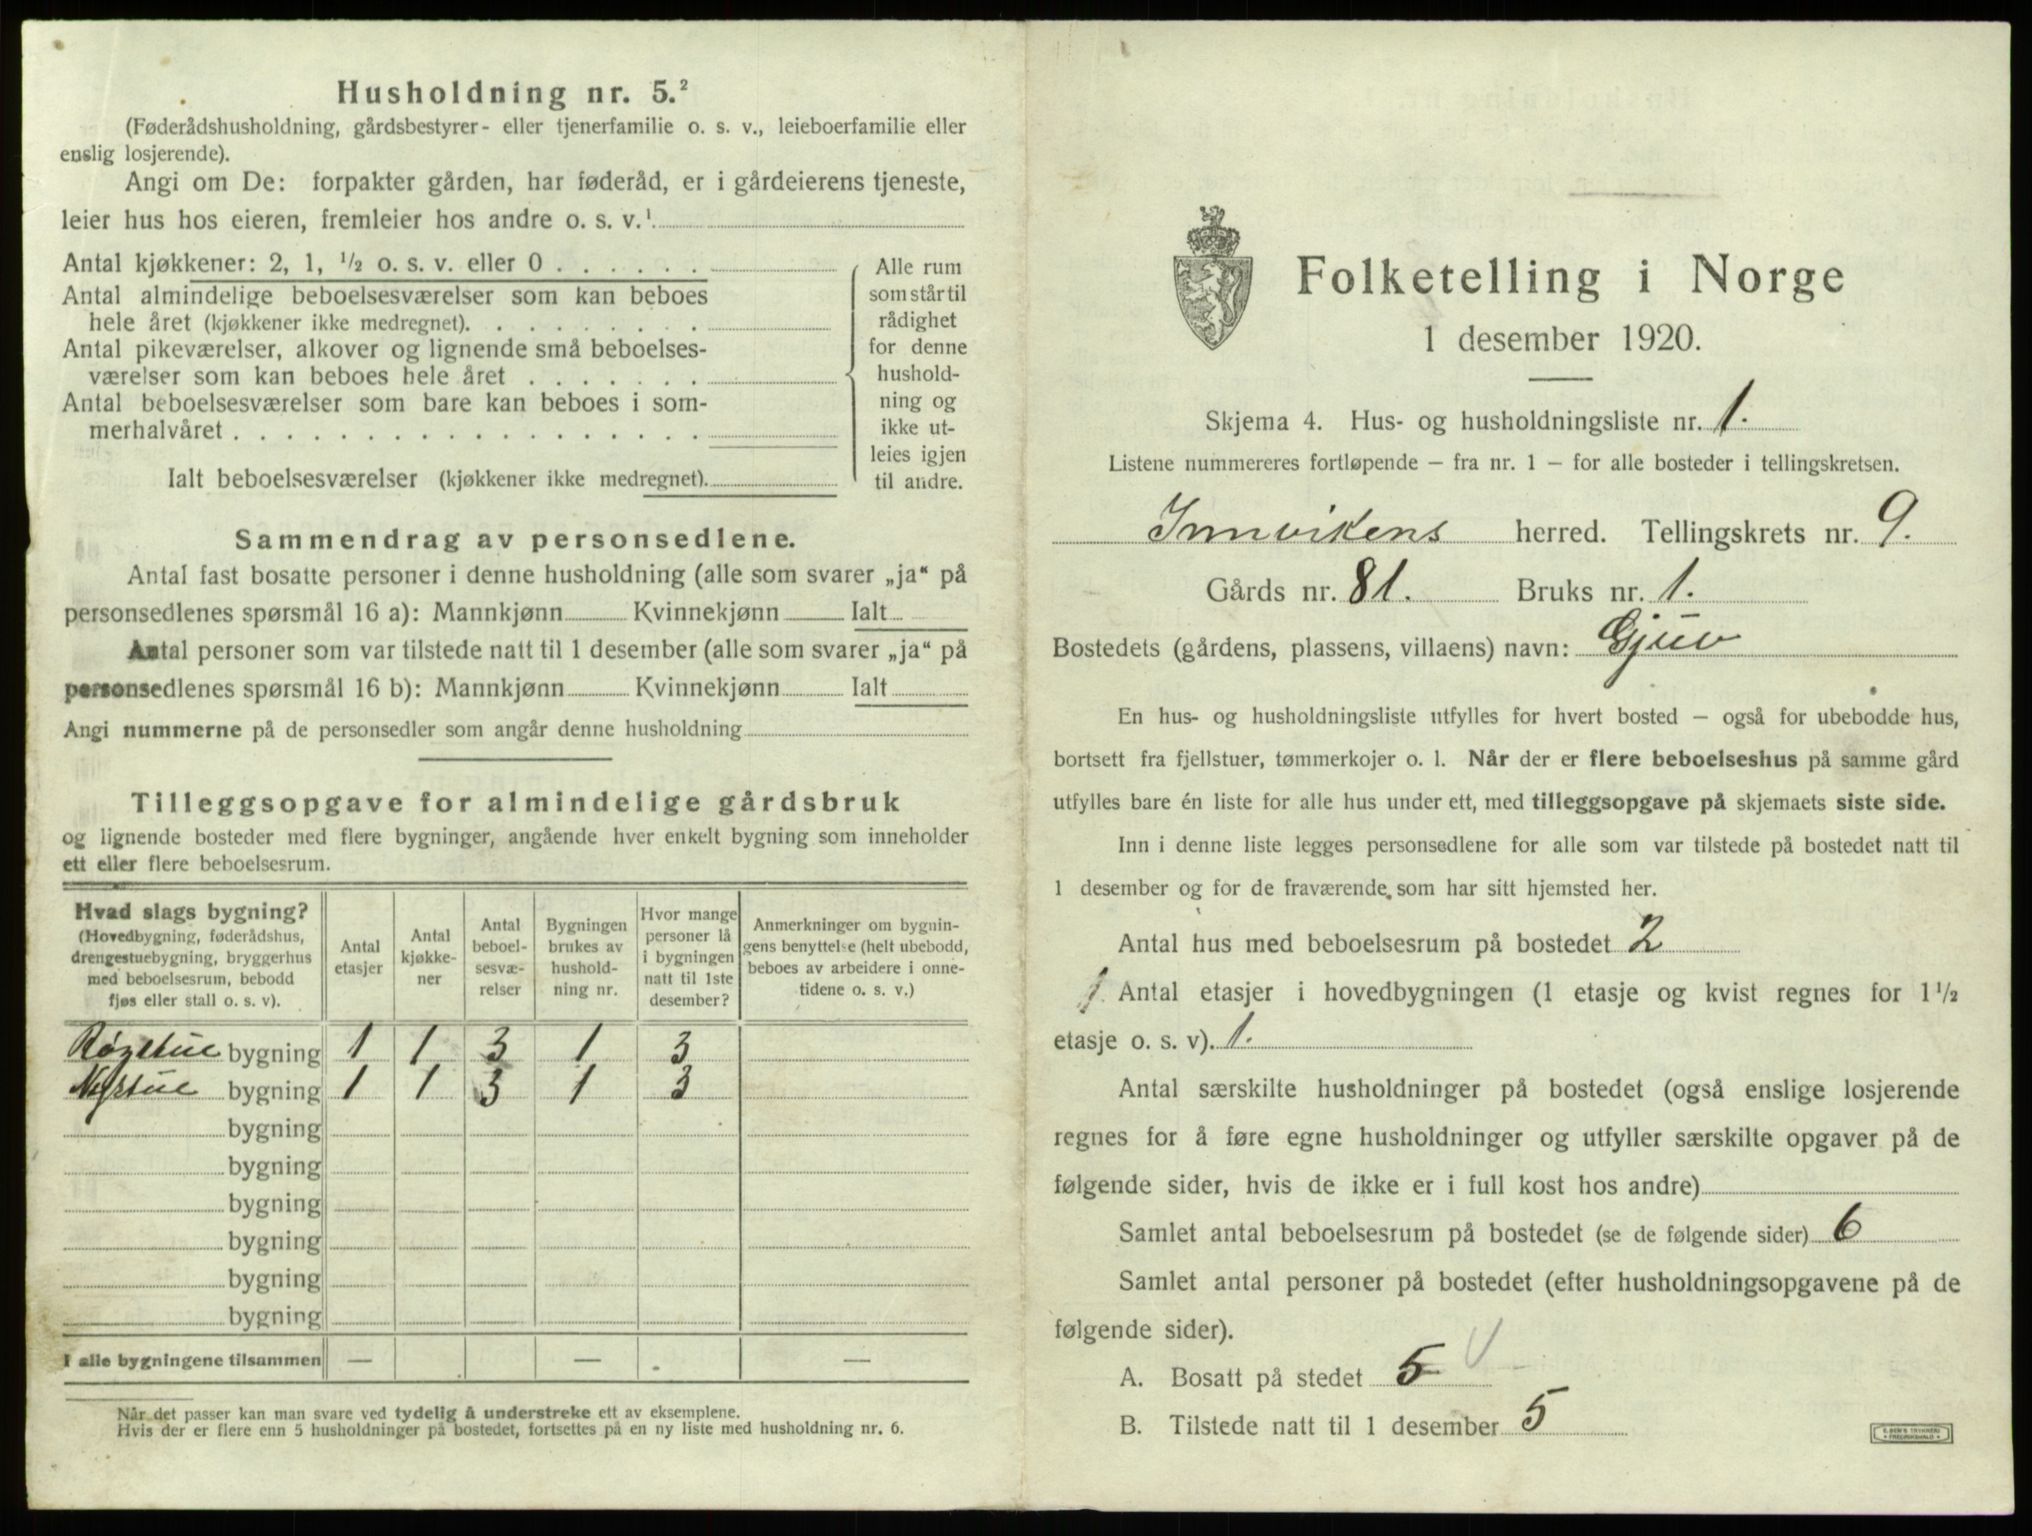 Husholdning nr. 5.²
(Føderådshusholdning, gårdsbestyrer- eller tjenerfamilie o. s. v., leieboerfamilie eller
enslig losjerende).
Angi om De: forpakter gården, har føderåd, er i gårdeierens tjeneste,
leier hus hos eieren, fremleier hos andre o. s. v.¹
Antal kjøkkener: 2, 1, ½ o. s. v. eller 0 . . . . . .
Antal almindelige beboelsesværelser som kan beboes
hele året (kjøkkener ikke medregnet). . . . . . . . .
Antal pikeværelser, alkover og lignende små beboelses-
værelser som kan beboes hele året . . . . . . .
Antal beboelsesværelser som bare kan beboes i som-
merhalvåret . . . . . . . . . . . . . . . . . .
Ialt beboelsesværelser (kjøkkener ikke medregnet).
Alle rum
som står til
rådighet
for denne
hushold-
ning og
ikke ut-
leies igjen
til andre.
Sammendrag av personsedlene.
Antal fast bosatte personer i denne husholdning (alle som svarer „ja“ på
personsedlenes spørsmål 16 a): Mannkjønn Kvinnekjønn Ialt
Antal personer som var tilstede natt til 1 desember (alle som svarer „ja“ på
personsedlenes spørsmål 16 b): Mannkjønn Kvinnekjønn Ialt
Angi nummerne på de personsedler som angår denne husholdning
Tilleggsopgave for almindelige gårdsbruk
og lignende bosteder med flere bygninger, angående hver enkelt bygning som inneholder
ett eller flere beboelsesrum.
Hvad slags bygning?
(Hovedbygning, føderådshus,
drengestuebygning, bryggerhus
med beboelsesrum, bebodd
fjøs eller stall o. s. v).
Antal
etasjer
Antal
kjøkke-
ner
Antal
beboel-
sesvæ-
relser
Bygningen
brukes av
hushold-
ning nr.
Hvor mange
personer lå
i bygningen
natt til 1ste
desember?
Anmerkninger om bygnin-
gens benyttelse (helt ubebodd,
beboes av arbeidere i onne-
tidene o. s. v.)
bygning 1 1 3 1 3
Nystue bygning 1 1 3 1 3
bygning
bygning
bygning
bygning
bygning
bygning
I alle bygningene tilsammen — — —
Når det passer kan man svare ved tydelig å understreke ett av eksemplene.
Hvis der er flere enn 5 husholdninger på bostedet, fortsettes på en ny liste med husholdning nr. 6.
Folketelling i Norge
1 desember 1920.
Skjema 4. Hus- og husholdningsliste nr. 1.
Listene nummereres fortløpende – fra nr. 1 – for alle bosteder i tellingskretsen.
Innvikens herred. Tellingskrets nr. 9.
Gårds nr. 81. Bruks nr. 1.
Bostedets (gårdens, plassens, villaens) navn: Gjuv
En hus- og husholdningsliste utfylles for hvert bosted – også for ubebodde hus,
bortsett fra fjellstuer, tømmerkojer o. l. Når der er flere beboelseshus på samme gård
utfylles bare én liste for alle hus under ett, med tilleggsopgave på skjemaets siste side.
Inn i denne liste legges personsedlene for alle som var tilstede på bostedet natt til
1 desember og for de fraværende som har sitt hjemsted her.
Antal hus med beboelsesrum på bostedet 2
1. Antal etasjer i hovedbygningen (1 etasje og kvist regnes for 1½
etasje o. s. v). 1.
Antal særskilte husholdninger på bostedet (også enslige losjerende
regnes for å føre egne husholdninger og utfyller særskilte opgaver på de
følgende sider, hvis de ikke er i full kost hos andre)
Samlet antal beboelsesrum på bostedet (se de følgende sider) 6
Samlet antal personer på bostedet (efter husholdningsopgavene på de
følgende sider).
A. Bosatt på stedet 5
B. Tilstede natt til 1 desember 5